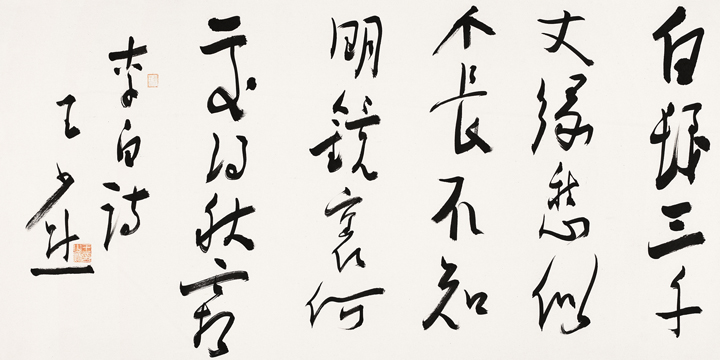 白髮三千
丈緣愁似
个長不知
明鏡裏何
處得秋霜
李白詩
王